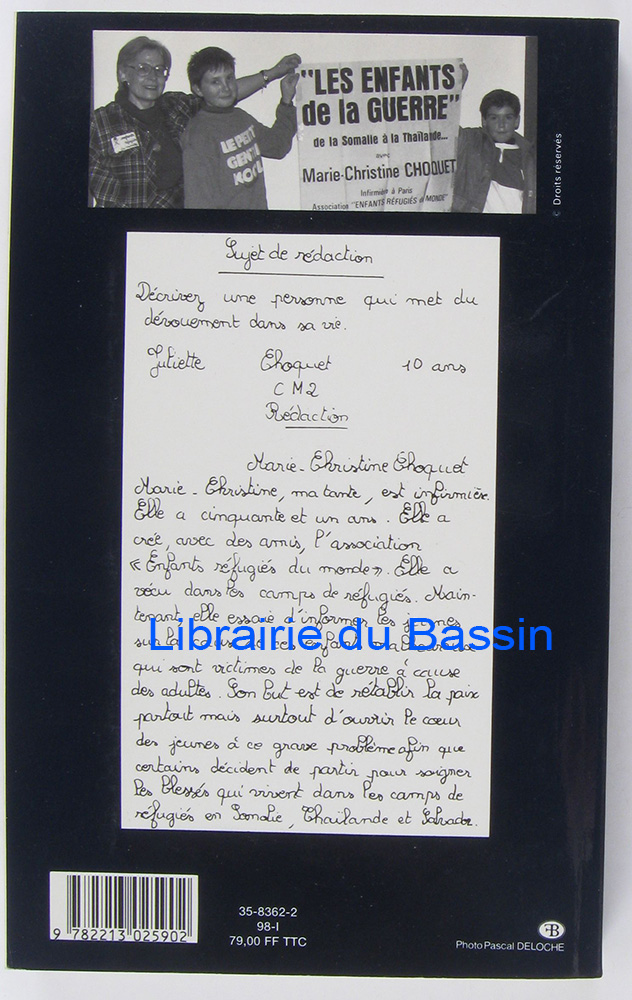 LE PETIT
"LES ENFANTS
de la GUERRE"
de la Somalie à la Thaïlande...
avec
Marie-Christine CHOQUET
Infirmière à Paris
Association "ENFANTS RÉFUGIÉS du MONDE"
© Droits réservés
Sujet de rédaction
Décrivez une personne qui met du
dévouement dans sa vie.
Juliette Choquet 10 ans
CM2
Rédaction
Marie-Christine Choquet
Marie-Christine, ma tante, est infirmière.
Elle a cinquante et un ans. Elle a
créé, avec des amis, l'association
« Enfants réfugiés du monde ». Elle a
vécu dans les camps de réfugiés. Main-
tenant, elle essaie d'informer les jeunes
Librairie du Bassin
sur la de ces enfants
qui sont victimes de la guerre à cause
des adultes. Son but est de rétablir la paix
partout mais surtout d'ouvrir le cœur
des jeunes à ce grave problème afin que
certains décident de partir pour soigner
les blessés qui vivent dans les camps de
réfugiés en Somalie, Thaïlande et Salvador.
9 782213 025902
35-8362-2
98-I
79,00 FF TTC
Photo Pascal DELOCHE